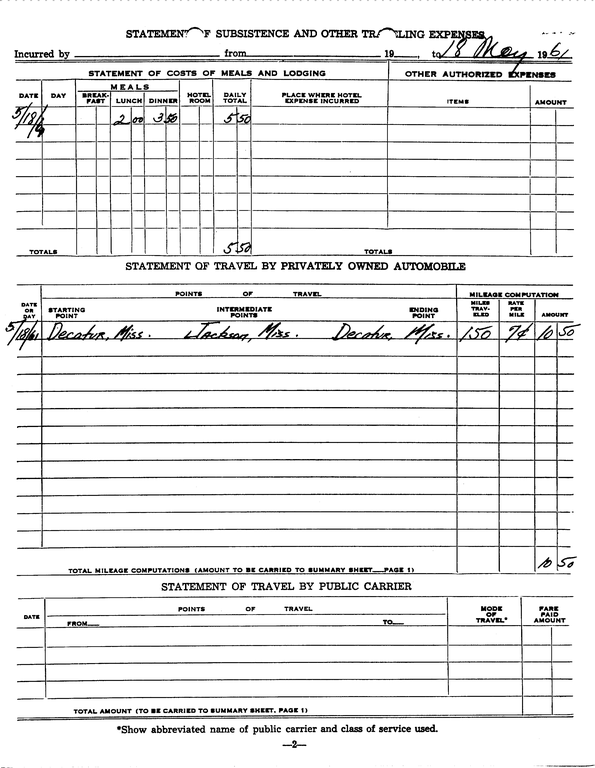 STATEMENT OF SUBSISTENCE AND OTHER TRAVELING EXPENSES
Incurred by from 19 , to 18 May 1961
STATEMENT OF COSTS OF MEALS AND LODGING OTHER AUTHORIZED EXPENSES
DATE DAY MEALS BREAK-FAST LUNCH DINNER HOTEL ROOM DAILY TOTAL PLACE WHERE HOTEL EXPENSE INCURRED ITEMS AMOUNT
5/18/ 2 00 3 50 5 50
TOTALS 5 50 TOTALS
STATEMENT OF TRAVEL BY PRIVATELY OWNED AUTOMOBILE
POINTS OF TRAVEL MILEAGE COMPUTATION
DATE OR DAY STARTING POINT INTERMEDIATE POINTS ENDING POINT MILES TRAV-ELED RATE PER MILE AMOUNT
5/18/61 Decatur, Miss. Jackson, Miss. Decatur, Miss. 150 7¢ 10 50
TOTAL MILEAGE COMPUTATIONS (AMOUNT TO BE CARRIED TO SUMMARY SHEET—PAGE 1) 10 50
STATEMENT OF TRAVEL BY PUBLIC CARRIER
DATE POINTS OF TRAVEL MODE OF TRAVEL* FARE PAID AMOUNT
FROM— TO—
TOTAL AMOUNT (TO BE CARRIED TO SUMMARY SHEET, PAGE 1)
*Show abbreviated name of public carrier and class of service used.
—2—